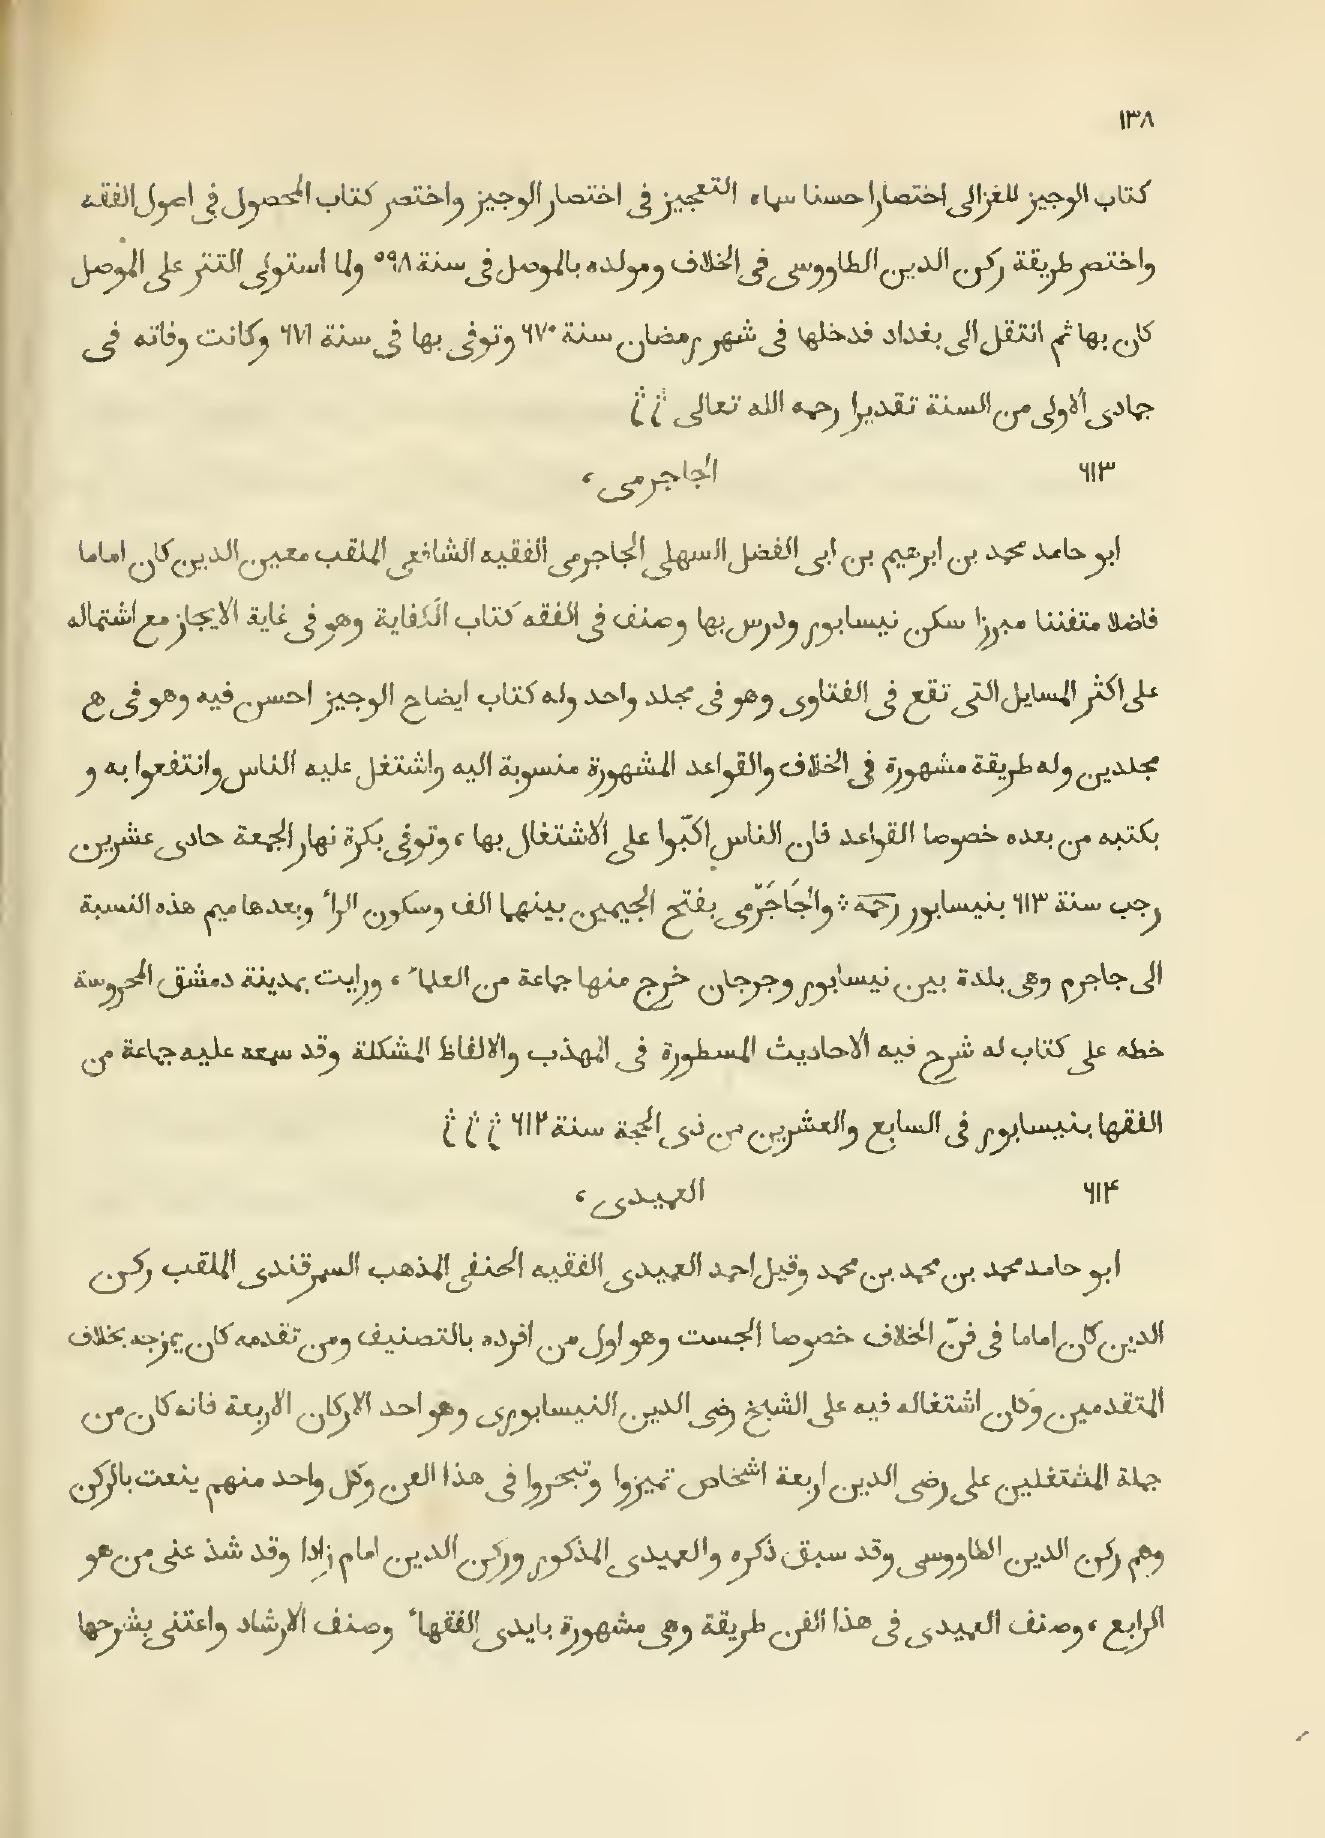 ١٣٨
كتاب الوجيز للغزالى اختصارا حسنا سماه التعجيز فى اختصار الوجيز واختصر كتاب المحصول فى اصول الفقه
واختصر طريقة ركن الدين الطاووسى فى الخلاف ومولده بالموصل فى سنة ٥٩٨ ولما استولى التتر على الموصل
كان بها ثم انتقل الى بغداد فدخلها فى شهر رمضان سنة ٦٧٠ وتوفى بها فى سنة ٦٧١ وكانت وفاته فى
جمادى الاولى من السنة تقديرا رحمه الله تعالى
٦١٣ الجاجرمى ،
ابو حامد محمد بن ابرهيم بن ابى الفضل السهلى الجاجرمى الفقيه الشافعى الملقب معين الدين كان اماما
فاضلا متفننا مبرزا سكن نيسابور ودرس بها وصنف فى الفقه كتاب الكفاية وهو فى غاية الايجاز مع اشتماله
على اكثر المسايل التى تقع فى الفتاوى وهو فى مجلد واحد وله كتاب ايضاح الوجيز احسن فيه وهو فى
مجلدين وله طريقة مشهورة فى الخلاف والقواعد المشهورة منسوبة اليه واشتغل عليه الناس وانتفعوا به و
بكتبه من بعده خصوصا القواعد فان الناس اكبّوا على الاشتغال بها ، وتوفى بكرة نهار الجمعة حادى عشرين
رجب سنة ٦١٣ بنيسابور رحمه والجَاجَرْمى بفتح الجيمين بينهما الف وسكون الراء وبعدها ميم هذه النسبة
الى جاجرم وهى بلدة بين نيسابور وجرجان خرج منها جماعة من العلماء ، ورايت بمدينة دمشق المحروسة
خطه على كتاب له شرح فيه الاحاديث المسطورة فى المهذب والالفاظ المشكلة وقد سمعه عليه جماعة من
الفقها بنيسابور فى السابع والعشرين من ذى الحجة سنة ٦١٢
٦١٤ العميدى ،
ابو حامد محمد بن محمد بن محمد وقيل احمد العميدى الفقيه الحنفى المذهب السمرقندى الملقب ركن
الدين كان اماما فى فنّ الخلاف خصوصا الجست وهو اول من افرده بالتصنيف ومن تقدمه كان يمزجه بخلاف
المتقدمين وكان اشتغاله فيه على الشيخ رضى الدين النيسابورى وهو احد الاركان الاربعة فانه كان من
جملة المشتغلين على رضى الدين اربعة اشخاص تميزوا وتبحروا فى هذا الفن وكل واحد منهم ينعت بالركن
وهم ركن الدين الطاووسى وقد سبق ذكره والعميدى المذكور وركن الدين امام زادا وقد شذ عنى من هو
الرابع ، وصنف العميدى فى هذا الفن طريقة وهى مشهورة بايدى الفقهاء وصنف الارشاد واعتنى بشرحها